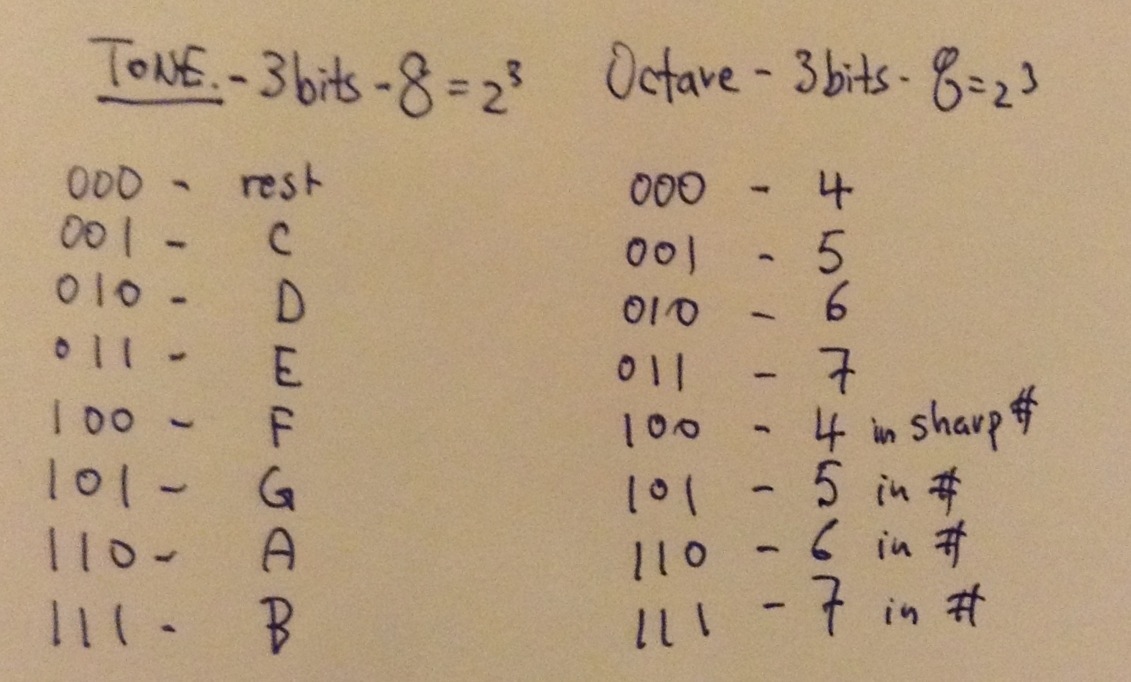 TONE. - 3bits - 8 = 2³
000 - rest
001 - C
010 - D
011 - E
100 - F
101 - G
110 - A
111 - B
Octave - 3bits - 8 = 2³
000 - 4
001 - 5
010 - 6
011 - 7
100 - 4 in sharp #
101 - 5 in #
110 - 6 in #
111 - 7 in #